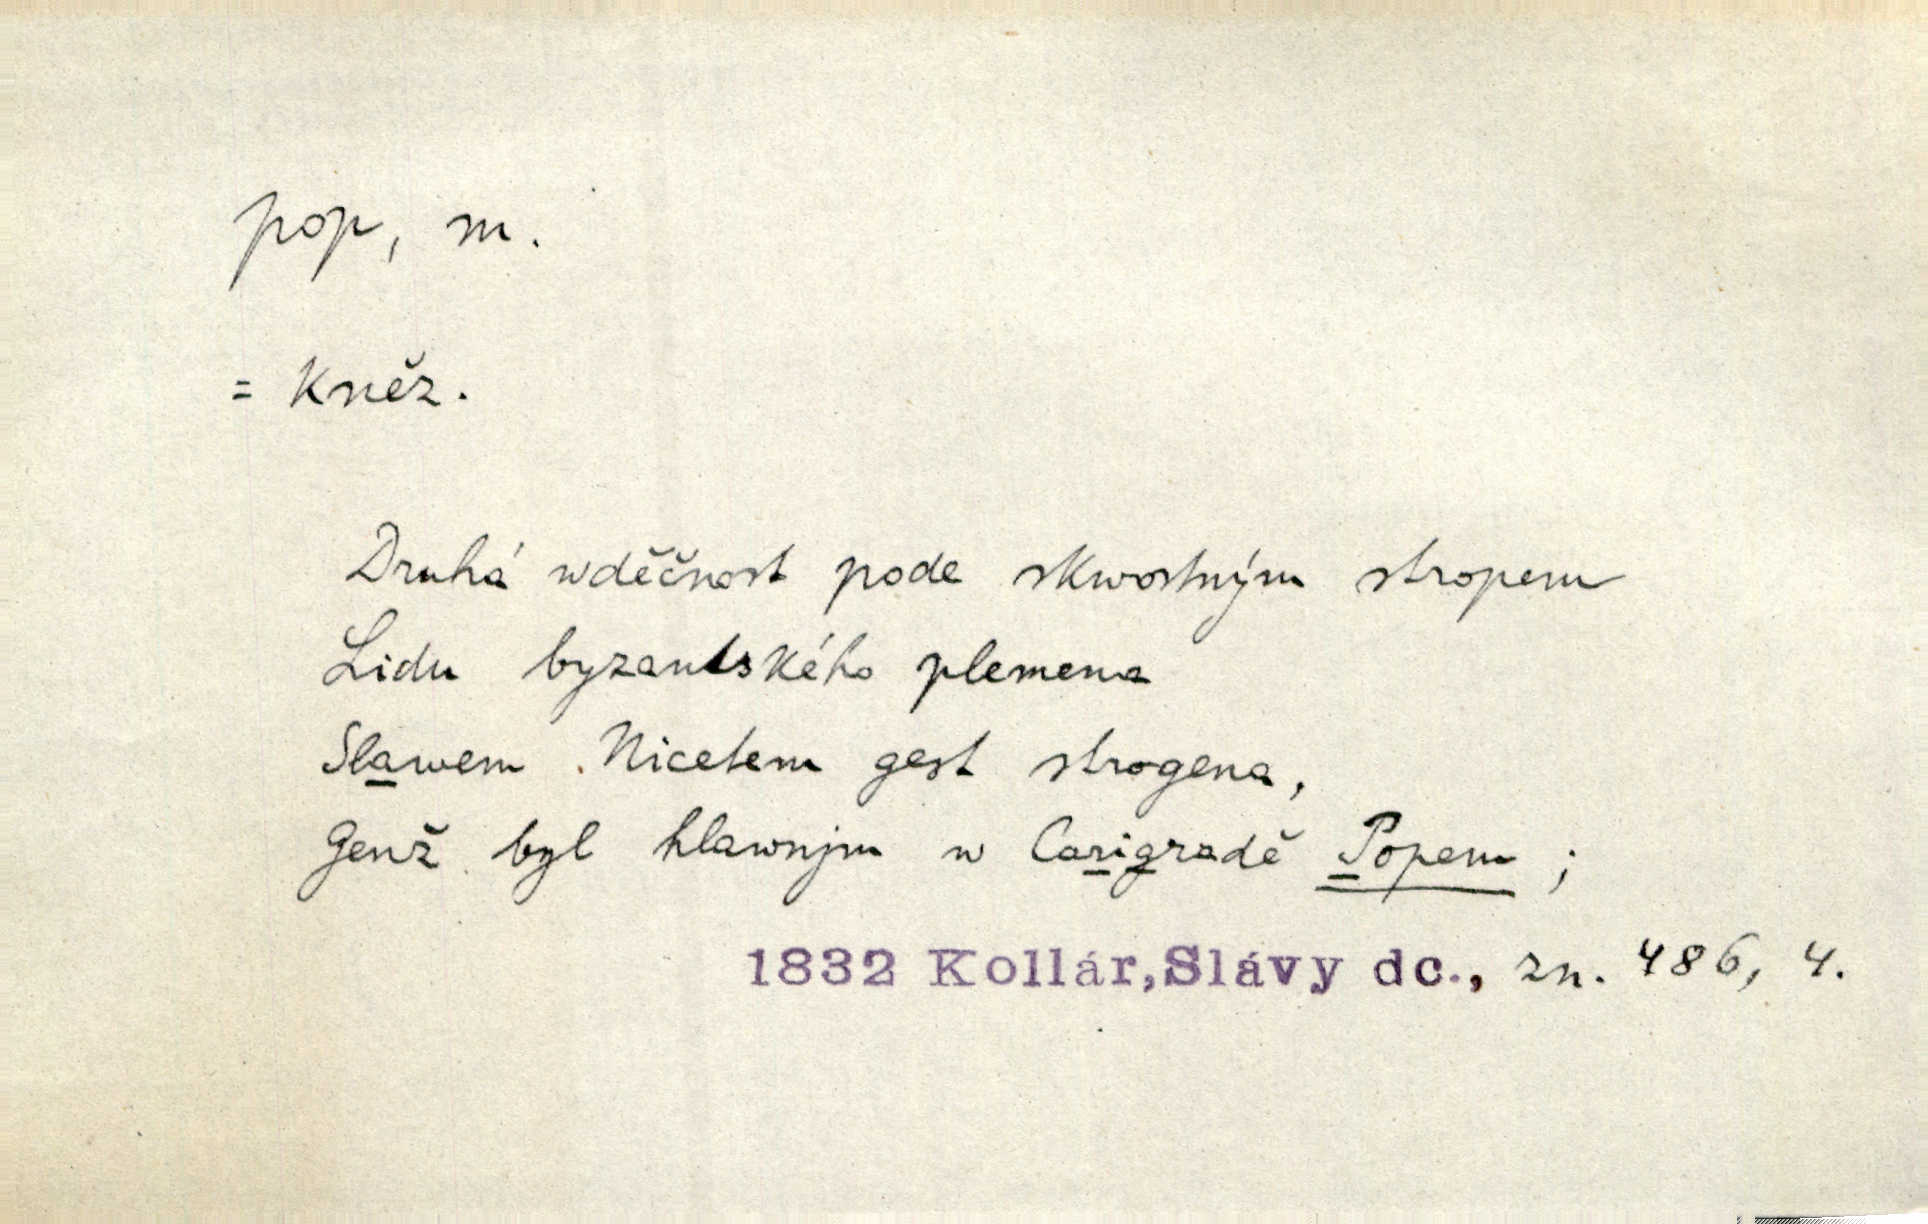 pop, m.
= kněz.
Druhá wděčnost pode skwostným stropem
Lidu byzantského plemena
Slawem Nicetem gest strogena,
Genž byl hlawnjm w Carigradě Popem ;
1832 Kollár,Slávy dc., zn. 486, 4.